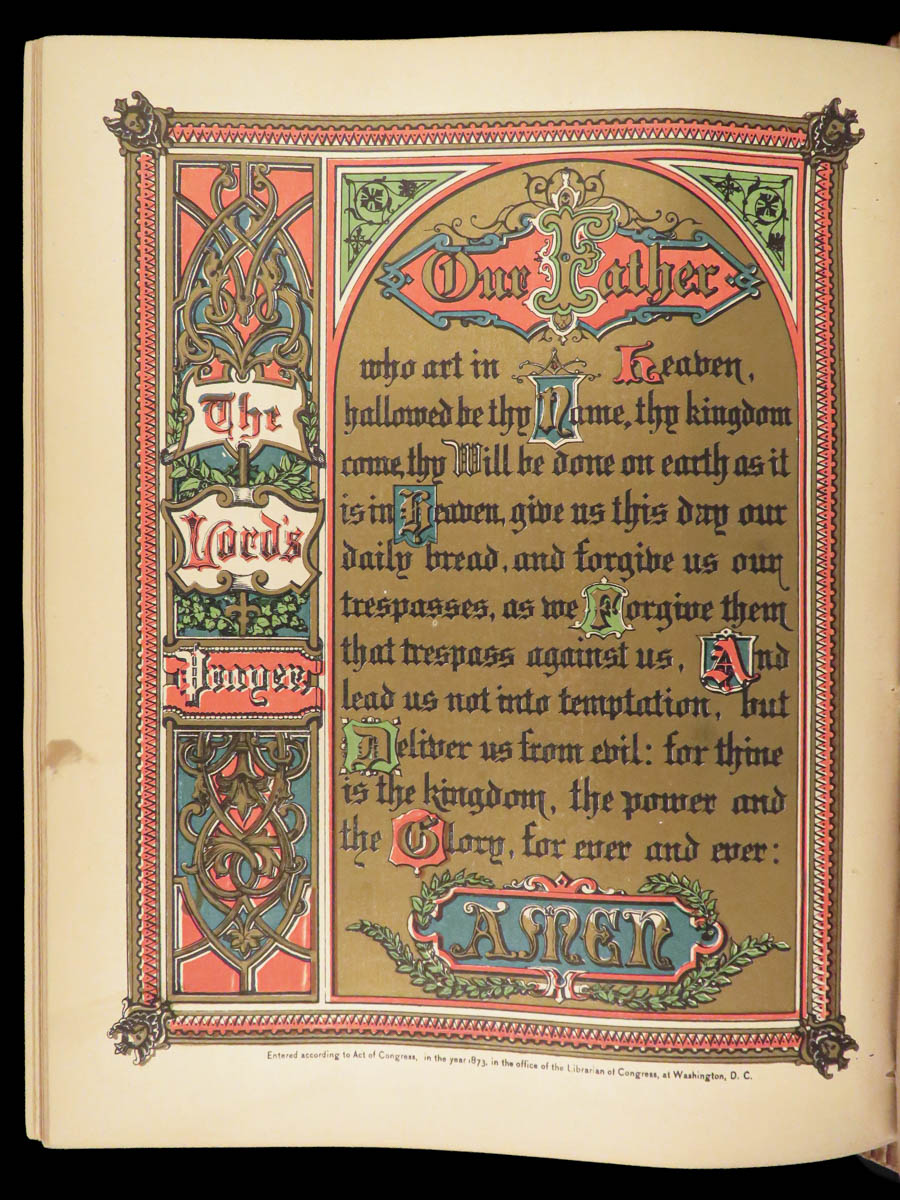 The
Lord's
Prayer,
Our Father
who art in Heaven,
hallowed be thy Name, thy kingdom
come, thy Will be done on earth as it
is in Heaven, give us this day our
daily bread, and forgive us our
trespasses, as we Forgive them
that trespass against us, And
lead us not into temptation, but
Deliver us from evil: for thine
is the kingdom, the power and
the Glory, for ever and ever:
AMEN
Entered according to Act of Congress, in the year 1873, in the office of the Librarian of Congress, at Washington, D. C.